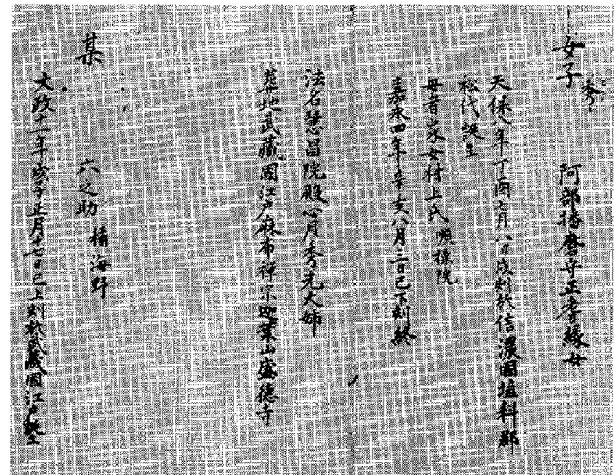 女子
秀
阿部播磨守正𫝶縁女
天保八年丁酉六月八日戌刻於信濃国埴科郡
松代誕生
母者家女村上氏順操院
嘉永四年辛亥八月三日巳下刻終
法名慧昌院殿心月秀光大姉
葬地武蔵国江戸麻布禅宗迦葉山盛徳寺
某
六之助 橘海野
文政十一年戊子正月十七日巳上刻於武蔵国江戸誕生